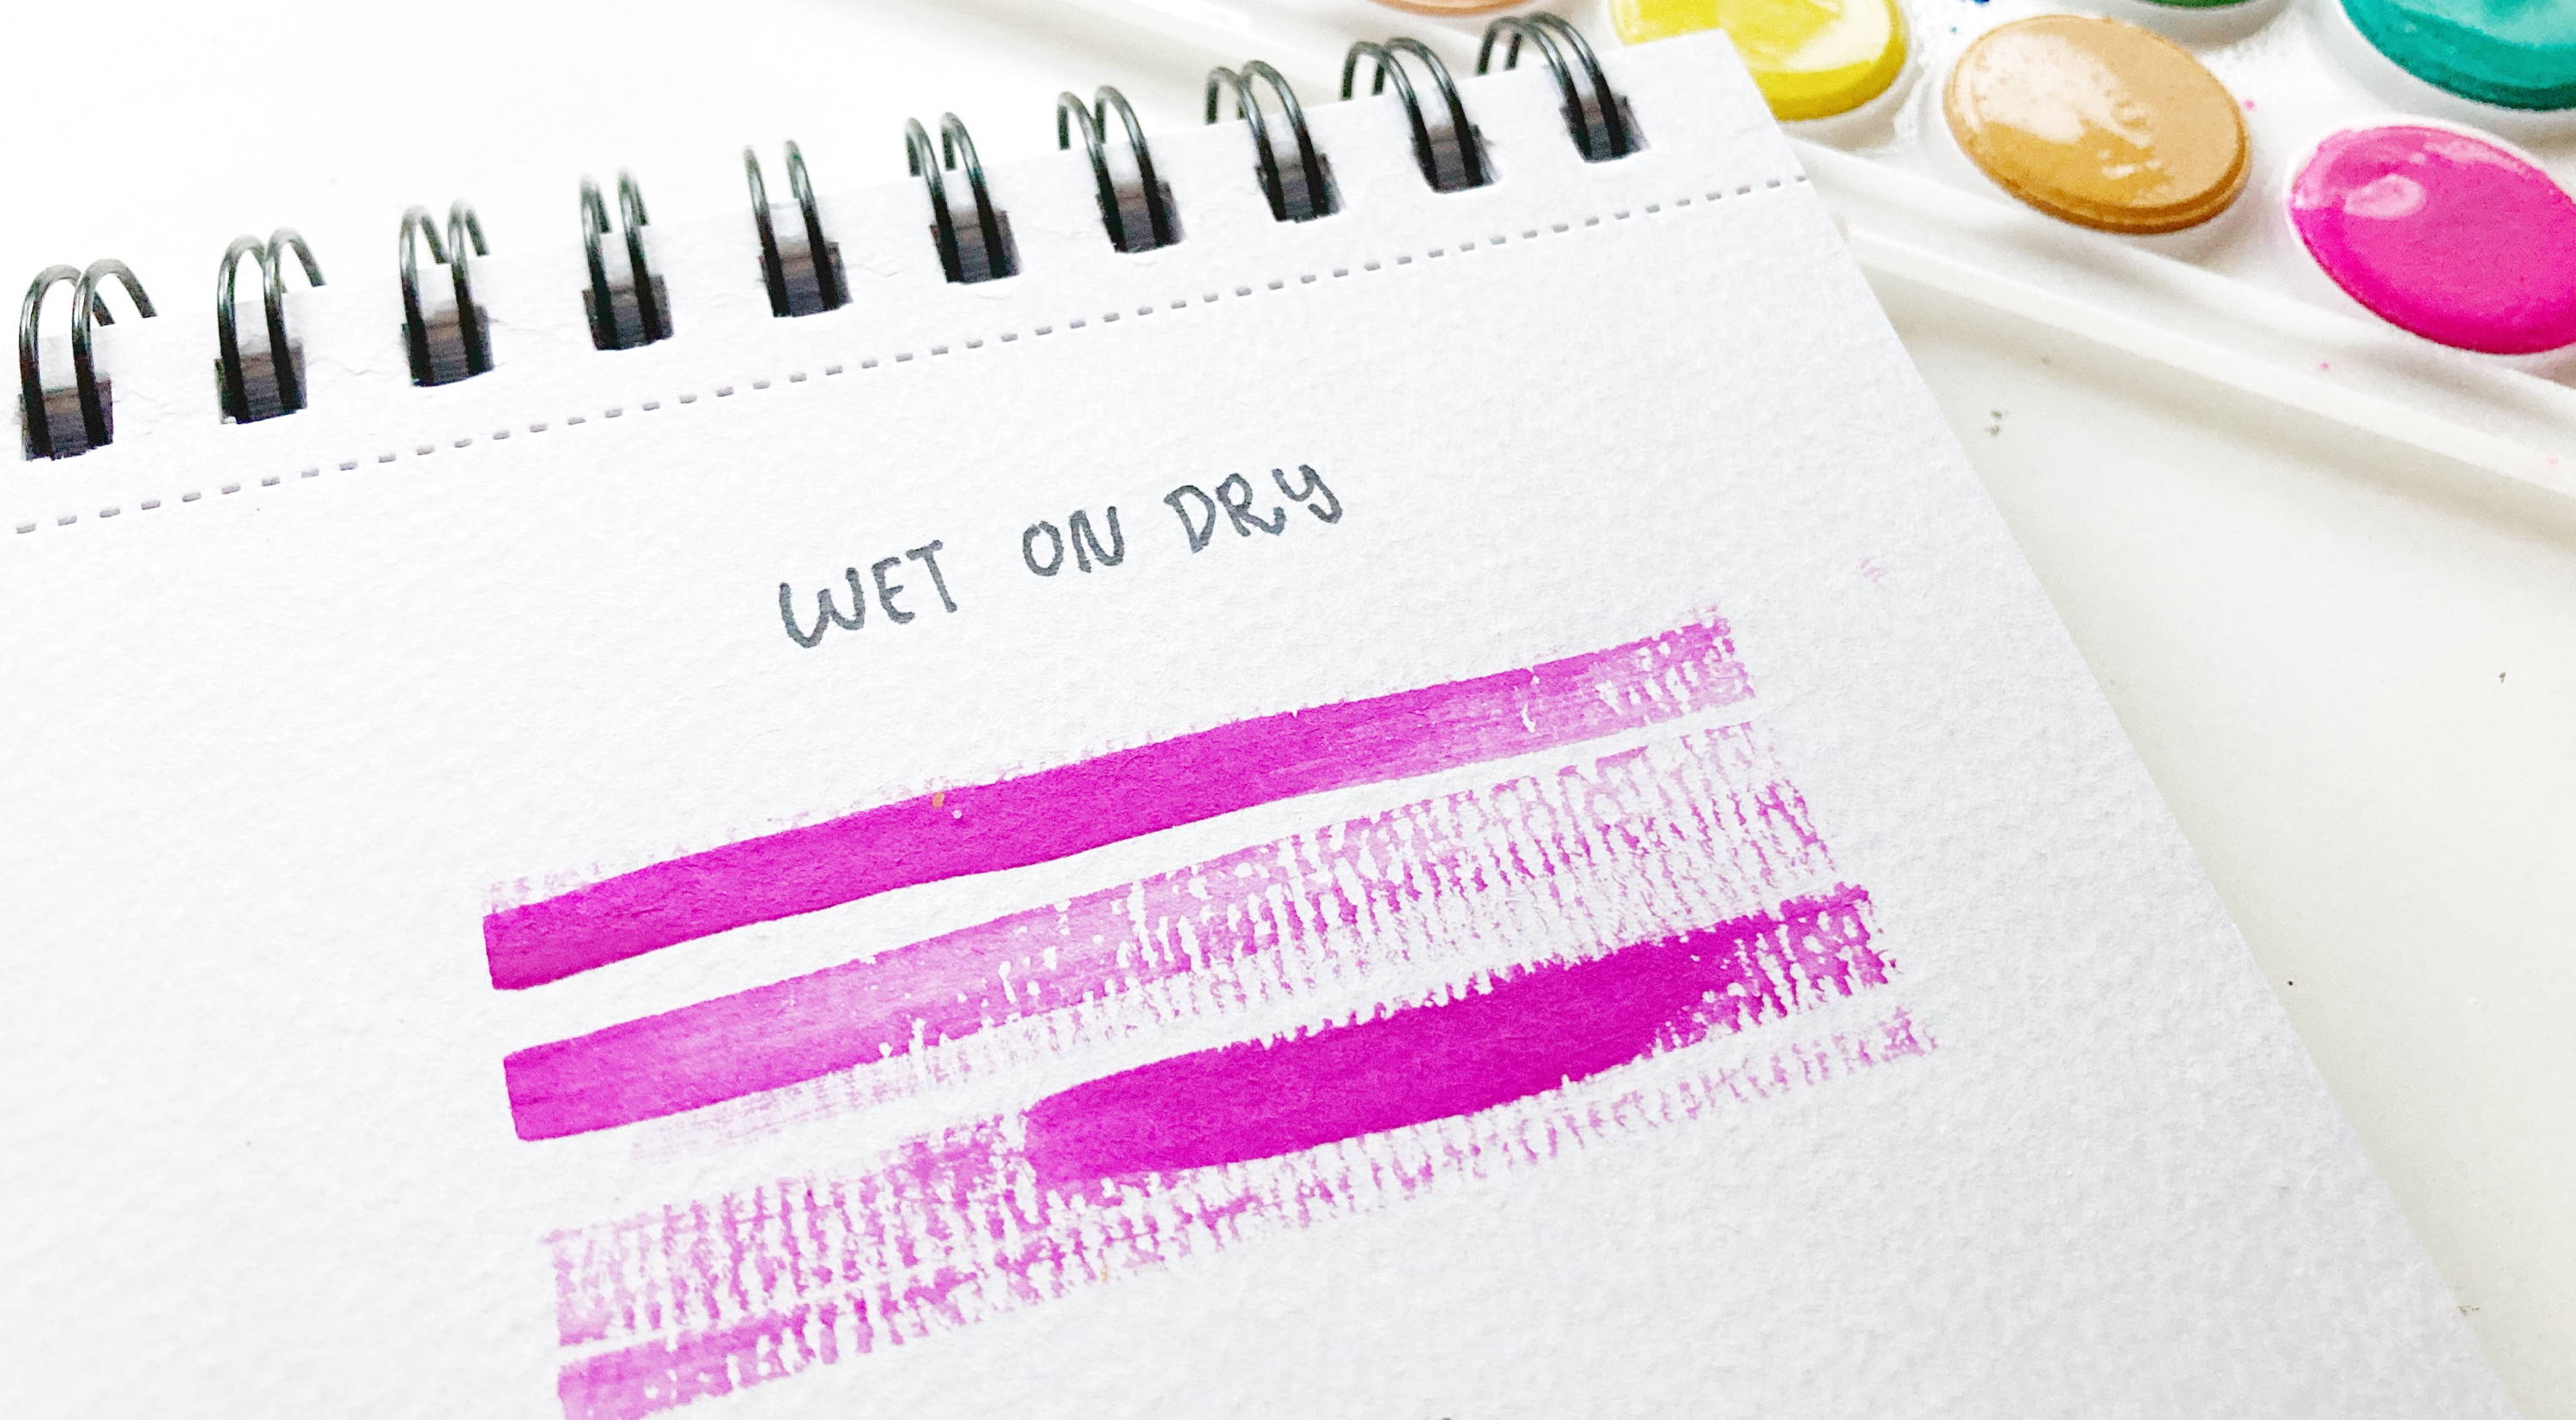 WET ON DRY